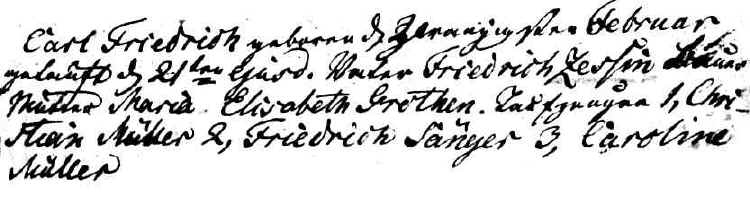 Carl Friedrich geboren d. Zwanzigsten Februar
getauft d. 21ten ejusd. Vater Friedrich Zessin Bauer
Mutter Maria Elisabeth Grothen. Taufzeugen 1, Chri-
stian Müller 2, Friedrich Sänger 3, Caroline
Müller